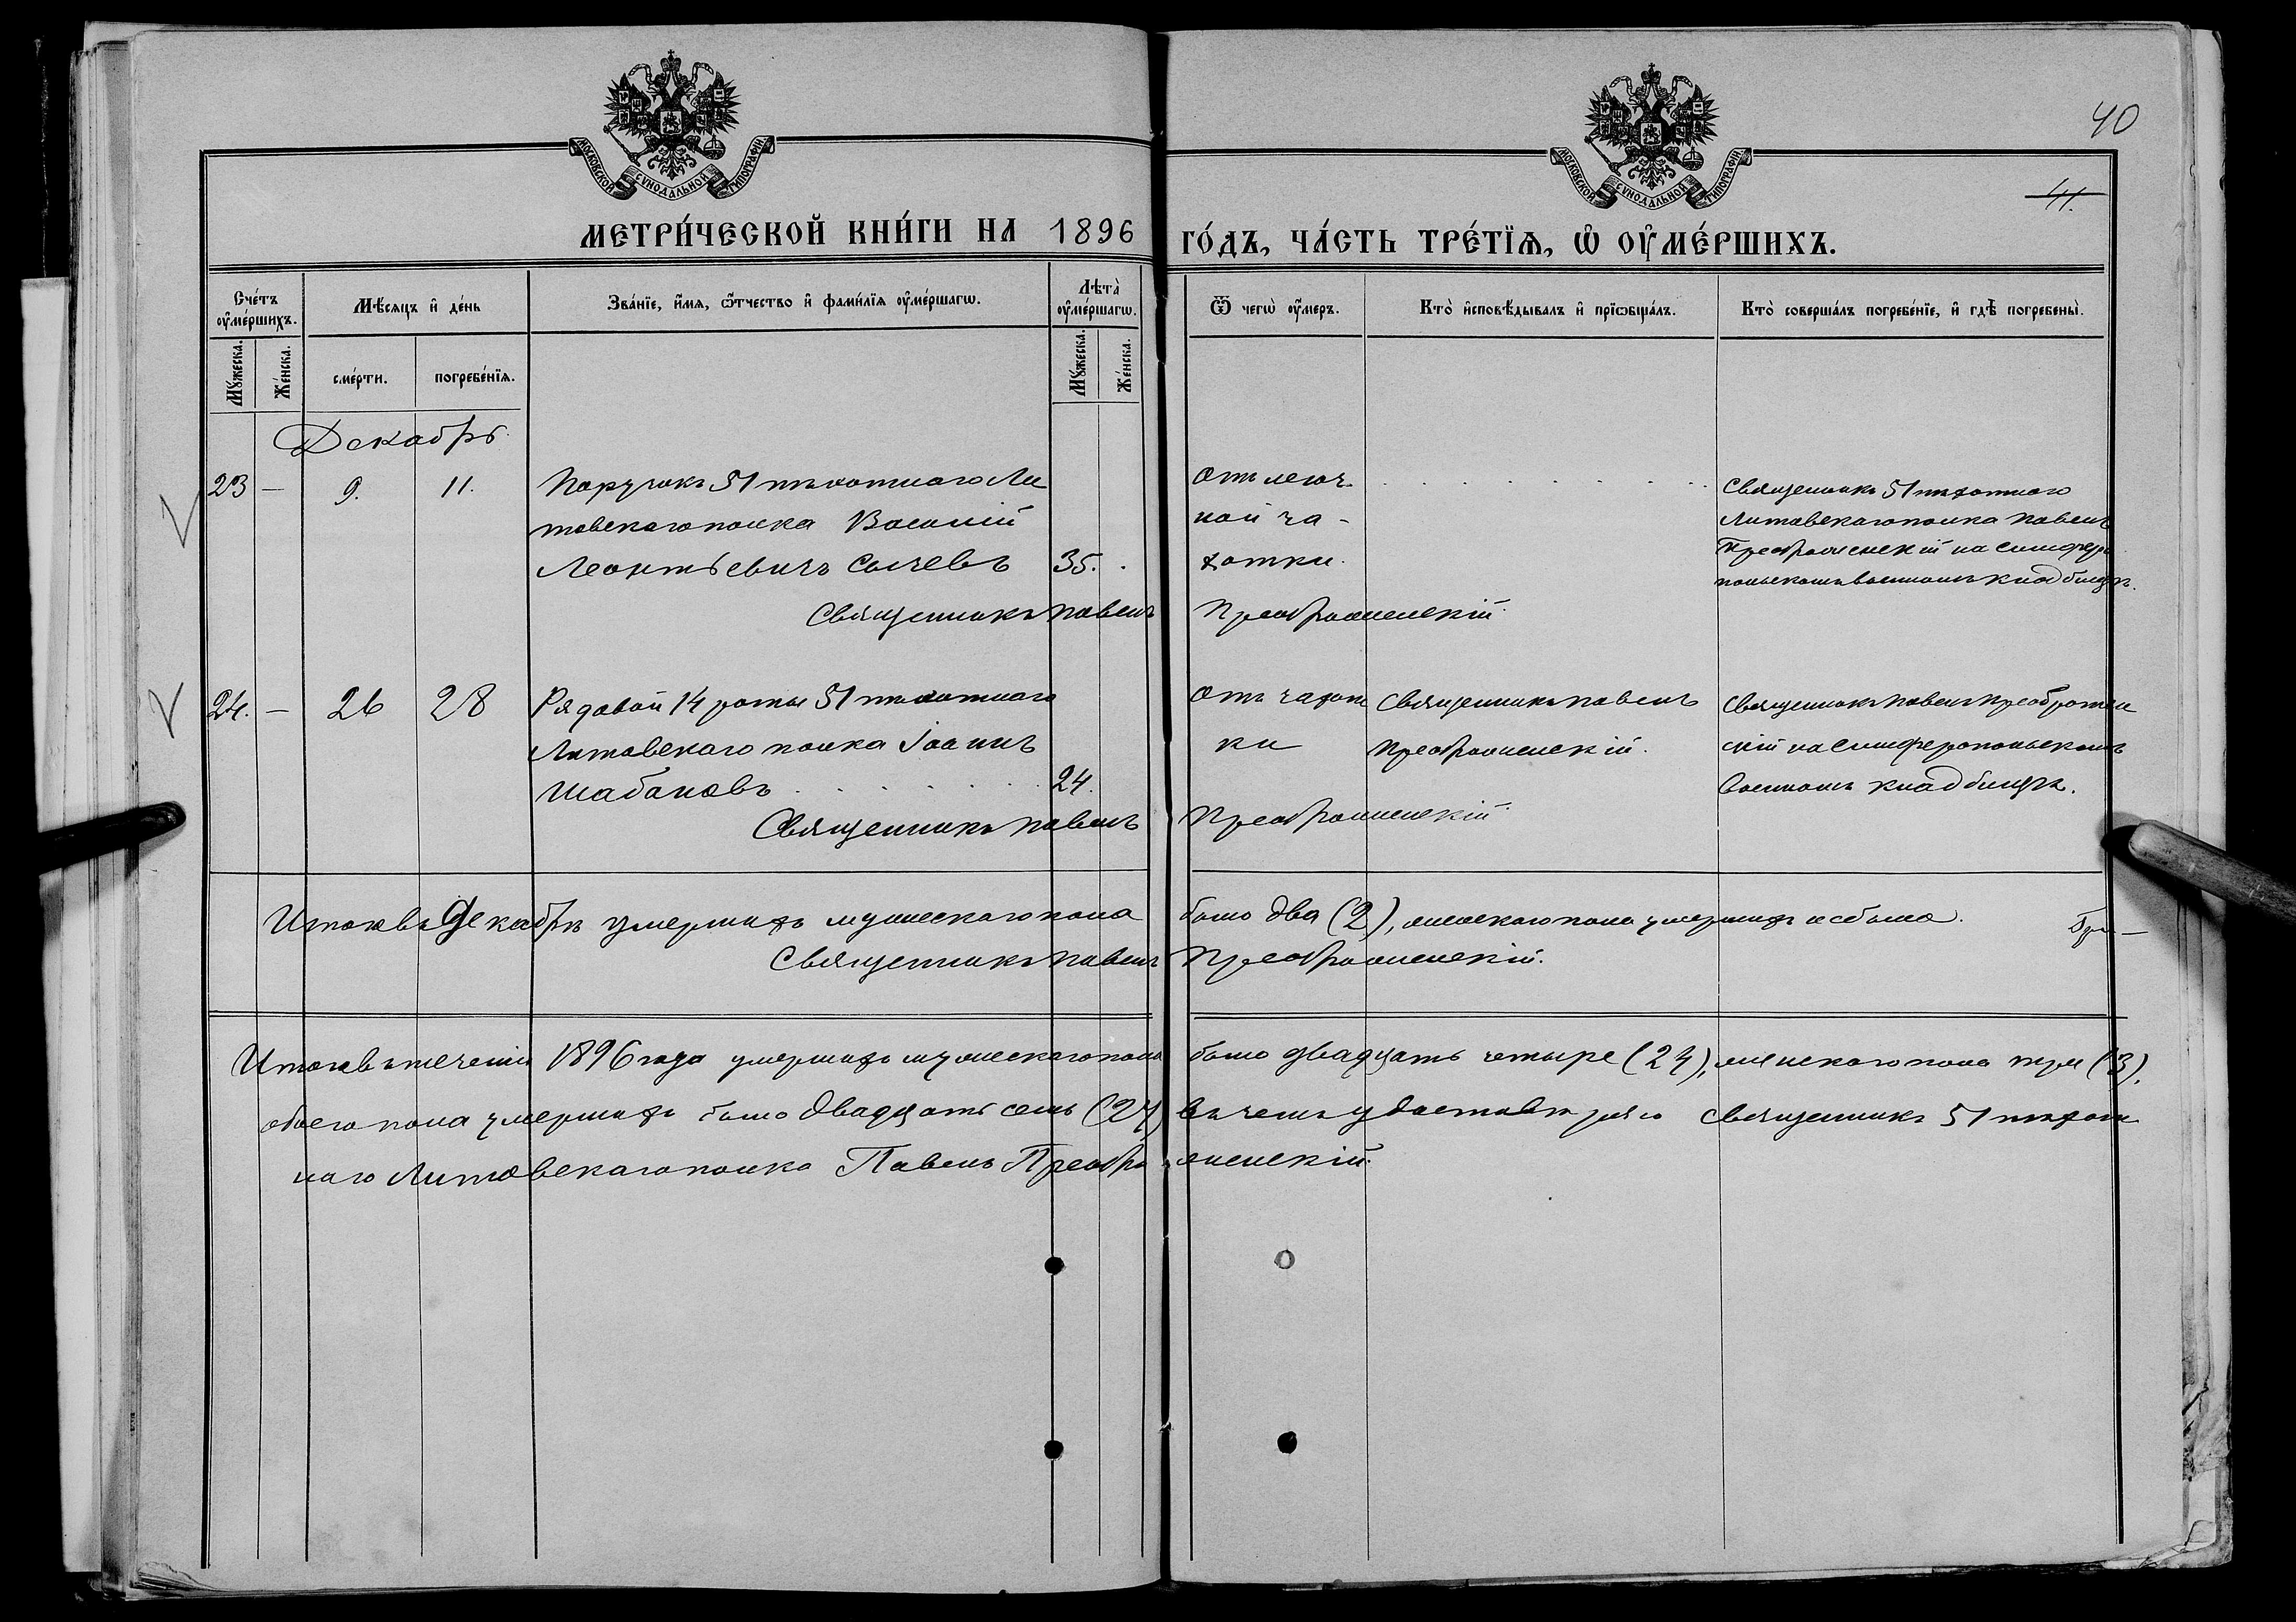 40
41.
МОСКОВСКОЙ СѴНОДАЛЬНОЙ ТИПОГРАФІИ.
МОСКОВСКОЙ СѴНОДАЛЬНОЙ ТИПОГРАФІИ.
МЕТРИ́ЧЕСКОЙ КНИ́ГИ НА 1896 ГО́ДЪ, ЧА́СТЬ ТРЕ́ТІѦ, Ѡ ОУ҆МЕ́РШИХЪ.
Сче́тъ оу҆ме́ршихъ.
Мѣ́сяцъ и҆ де́нь
Зва́нїе, и҆́мѧ, ѻ҆́тчество и҆ фами́лїѧ оу҆ме́ршагѡ.
Лѣ́та оу҆ме́ршагѡ.
Ѿ чегѡ̀ оу҆́меръ.
Кто̀ и҆сповѣ́дывалъ и҆ прїѡбща́лъ.
Кто̀ соверша́лъ погребе́нїе, и҆ гдѣ̀ погребены̀.
Му́жеска.
Же́нска.
сме́рти.
погребе́нїѧ.
Му́жеска.
Же́нска.
Декабрь.
23 — 9. 11.
Поручикъ 51 пѣхотнаго Ли
товскаго полка Василій
Леонтьевичъ Сычевъ 35.
Отъ легоч
ной ча-
хотки.
Священникъ 51 пѣхотнаго
Литовскаго полка Павелъ
Преображенскій на Симферо
польскомъ военномъ кладбищѣ.
Священникъ Павелъ Преображенскій.
24. — 26 28
Рядовой 14 роты 51 пѣхотнаго
Литовскаго полка Іоаннъ
Шабановъ 24.
Отъ чахот
ки
Священникъ Павелъ
Преображенскій.
Священникъ Павелъ Преображен
скій на Симферопольскомъ
военномъ кладбищѣ.
Священникъ Павелъ Преображенскій
Итого въ Декабрѣ умершихъ мужескаго пола было два (2), женскаго пола умершихъ не было.
Священникъ Павелъ Преображенскій.
Итого въ теченіи 1896 года умершихъ мужескаго пола было двадцать четыре (24), женскаго пола три (3),
обоего пола умершихъ было двадцать семь (27) въ чемъ удостовѣряю Священникъ 51 пѣхот
наго Литовскаго полка Павелъ Преображенскій.